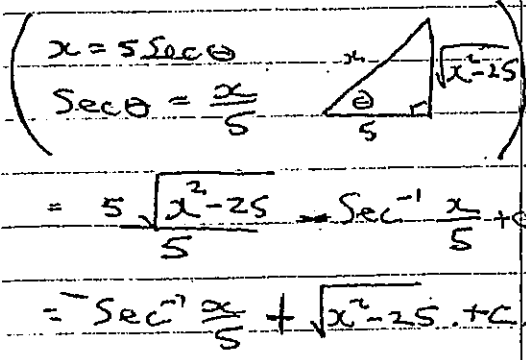 x = 5 Sec θ
Sec θ = x/5
x
√(x²-25)
θ
5
= 5 √(x²-25)/5 - Sec⁻¹ x/5 + C
= - Sec⁻¹ x/5 + √(x²-25) . + C